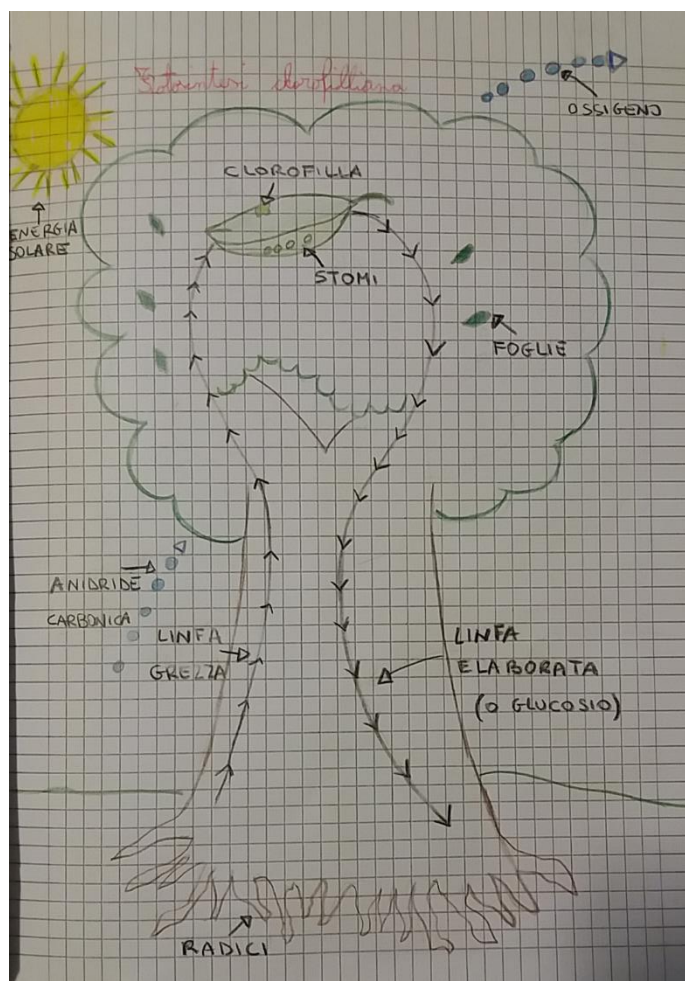 Fotosintesi clorofilliana
OSSIGENO
CLOROFILLA
ENERGIA
SOLARE
STOMI
FOGLIE
ANIDRIDE
CARBONICA
LINFA
GREZZA
LINFA
ELABORATA
(O GLUCOSIO)
RADICI